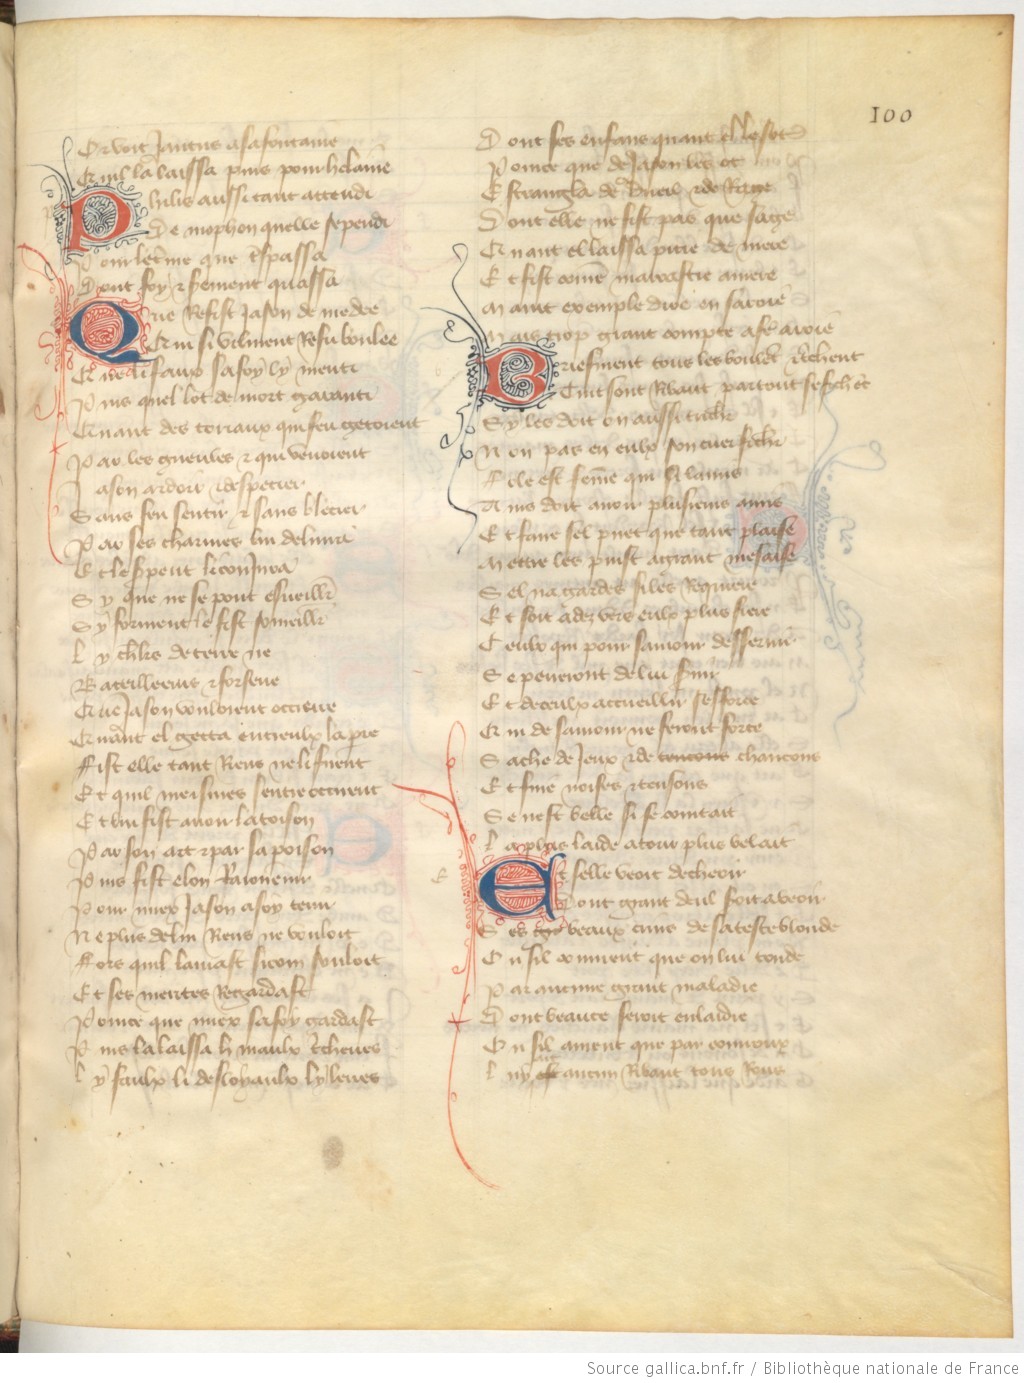 100
Or voit Jantus a sa fontaine
Qu il la laissa puis pour helaine
Philis aussi tant attendi
De mophon quelle se pendi
Pour le t̃me que t̃spassa
Dont foy ⁊ serement quassa
Que Refist Jason de medee
Qui si vilment Refu boulee
Que li faux sa foy ly menti
Puis quel lot de mort garanti
Quant des toriaux qui feu gettoient
Par les gueules ⁊ qui venoient
Jason ardoir ⁊ despecier
Sans feu sentir ⁊ sans blecier
Par ses charmes lui deliura
Et le serpent li coniura
Sy que ne se pout esueillr
Sy forment le fist someillr
Ly chl̃rs de terre ne
Bateillereus ⁊ forsene
Que Jason vouloient occirre
Quant el getta entreulx la pire
Fist elle tant Riens ne li fuient
Et quil meismes sentroccirent
Et lui fist auoir la toison
Par son art ⁊ par sa poison
Puis fist elon Raionenir
Pour miex Jason a soy tenir
Ne plus de lui Riens ne vouloit
Fors quil lamast sicom souloit
Et ses merites Regardast
Pource que miex sa foy gardast
Puis la laissa li maulx tricheres
Ly faulx li desloyaulx ly leres
Dont ses enfans quant elle sot
Pource que de Jason les ot
Estrangla de dueil ⁊ de Rage
Dont elle ne fist pas que sage
Quant el laissa pitie de mere
Et fist come marrastre amere
Maint exemple dire en saroie
Mais trop grant compte a fere aroie
Briefment tous les boulent ⁊ trichent
Tuit sont Ribaut par tout se fichet
Sy les doit on aussi trichr
Non pas en eulx son cuer fichr
Fole est feme qui si lamis
Ains doit auoir plusieurs amis
Et face sel puet que tant plaise
Mettre les puist a grant mesaise
Sel na graces si les Requiere
Et soit adez vers eulx plus fiere
Ceulx qui pour samour desseruir
Se peneront de lui seruir
Et de ceulx accueillir sesforce
Qui de samour ne feront force
Sache de Jeux ⁊ de chancons
Et fuie noises ⁊ tensons
Se nest belle si se cointait
La plus laide atour plus velait
Et selle veoit decheoir
Dont grant deul soit a veoir
Ses beaux crins de sa teste blonde
Ou sil conuient que on lui tonde
Par aucune grant maladie
Dont beaute seroit enlaidie
Ou sil auient que par couroux
Luy ait aucun Ribaut tous Rous
Source gallica.bnf.fr / Bibliothèque nationale de France